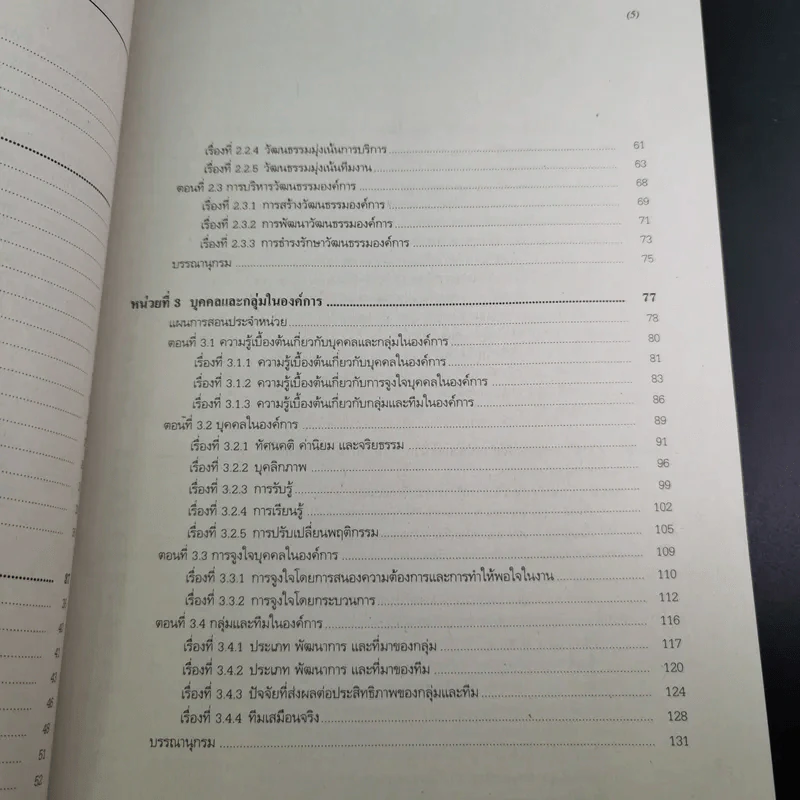 (5)
เรื่องที่ 2.2.4 วัฒนธรรมมุ่งเน้นการบริการ 61
เรื่องที่ 2.2.5 วัฒนธรรมมุ่งเน้นทีมงาน 63
ตอนที่ 2.3 การบริหารวัฒนธรรมองค์การ 68
เรื่องที่ 2.3.1 การสร้างวัฒนธรรมองค์การ 69
เรื่องที่ 2.3.2 การพัฒนาวัฒนธรรมองค์การ 71
เรื่องที่ 2.3.3 การธำรงรักษาวัฒนธรรมองค์การ 73
บรรณานุกรม 75
หน่วยที่ 3 บุคคลและกลุ่มในองค์การ 77
แผนการสอนประจำหน่วย 78
ตอนที่ 3.1 ความรู้เบื้องต้นเกี่ยวกับบุคคลและกลุ่มในองค์การ 80
เรื่องที่ 3.1.1 ความรู้เบื้องต้นเกี่ยวกับบุคคลในองค์การ 81
เรื่องที่ 3.1.2 ความรู้เบื้องต้นเกี่ยวกับการจูงใจบุคคลในองค์การ 83
เรื่องที่ 3.1.3 ความรู้เบื้องต้นเกี่ยวกับกลุ่มและทีมในองค์การ 86
ตอนที่ 3.2 บุคคลในองค์การ 89
เรื่องที่ 3.2.1 ทัศนคติ ค่านิยม และจริยธรรม 91
เรื่องที่ 3.2.2 บุคลิกภาพ 96
เรื่องที่ 3.2.3 การรับรู้ 99
เรื่องที่ 3.2.4 การเรียนรู้ 102
เรื่องที่ 3.2.5 การปรับเปลี่ยนพฤติกรรม 105
ตอนที่ 3.3 การจูงใจบุคคลในองค์การ 109
เรื่องที่ 3.3.1 การจูงใจโดยการสนองความต้องการและการทำให้พอใจในงาน 110
เรื่องที่ 3.3.2 การจูงใจโดยกระบวนการ 112
ตอนที่ 3.4 กลุ่มและทีมในองค์การ 116
เรื่องที่ 3.4.1 ประเภท พัฒนาการ และที่มาของกลุ่ม 117
เรื่องที่ 3.4.2 ประเภท พัฒนาการ และที่มาของทีม 120
เรื่องที่ 3.4.3 ปัจจัยที่ส่งผลต่อประสิทธิภาพของกลุ่มและทีม 124
เรื่องที่ 3.4.4 ทีมเสมือนจริง 128
บรรณานุกรม 131